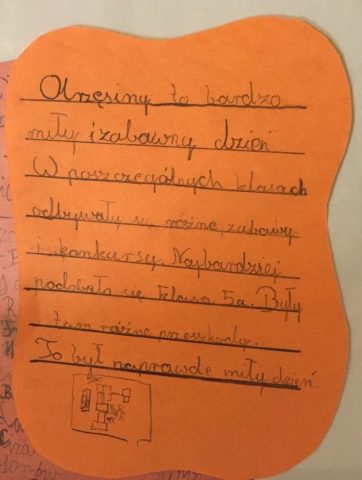 Otrzęsiny to bardzo
miły i zabawny dzień
W poszczególnych klasach
odbywały się różne zabawy
i konkursy. Najbardziej
podobała się klasa 5a. Były
tam różne przeszkody.
To był naprawdę miły dzień.